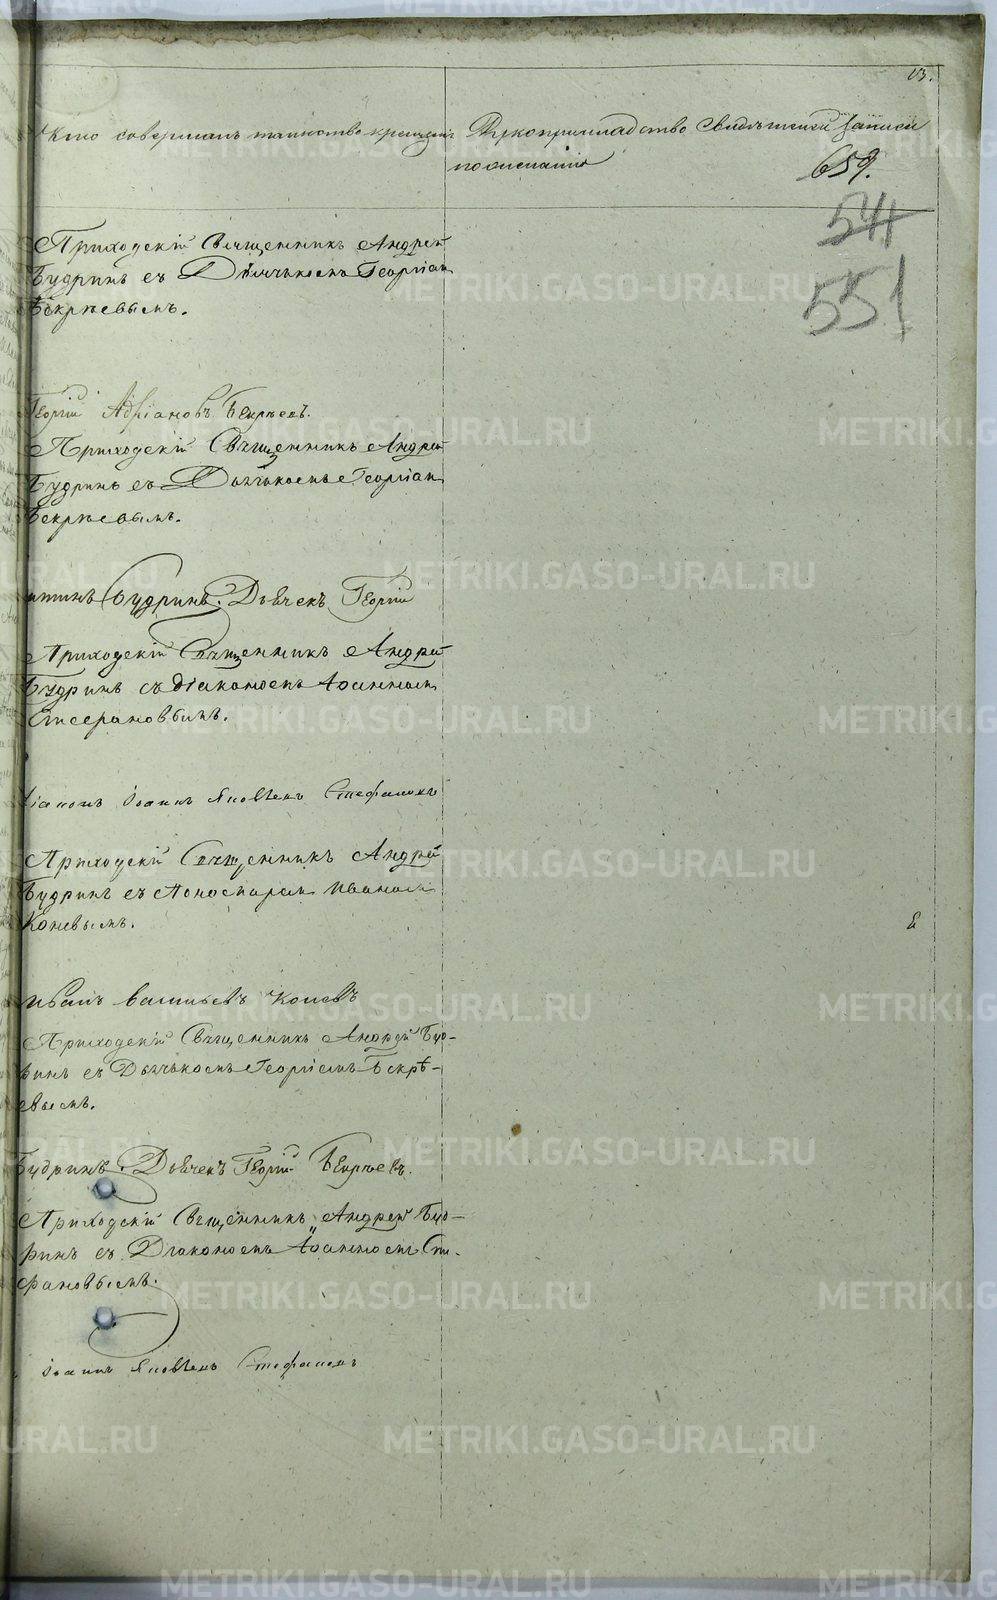 13.
Кто совершалъ таинство крещенія
Рукоприкладство свидѣтелей записи
по желанію
659.
541
551
Приходскій Священникъ Андрей
Будринъ съ Дьячькомъ Георгіем
Бекрѣевымъ.
Георгій Адріановъ Бекрѣевъ.
Приходскій Священникъ Андрей
Будринъ съ Дьячькомъ Георгіем
Бекрѣевымъ.
Будринъ. Дьячекъ Георгій
Приходскій Священникъ Андрей
Будринъ съ діакономъ Іоанномъ
Стефановымъ.
Іоаннъ Яковлевъ Стефановъ
Приходскій Священникъ Андрей
Будринъ съ Пономаремъ Иваномъ
Коневымъ.
Иванъ Васильевъ Коневъ
Приходскій Священникъ Андрей Буд-
ринъ съ Дьячькомъ Георгіемъ Бекрѣ-
евымъ.
Будринъ. Дьячекъ Георгій Бекрѣевъ.
Приходскій Священникъ Андрей Буд-
ринъ съ Діакономъ Іоанномъ Сте-
фановымъ.
Іоаннъ Яковлевъ Стефановъ
METRIKI.GASO-URAL.RU